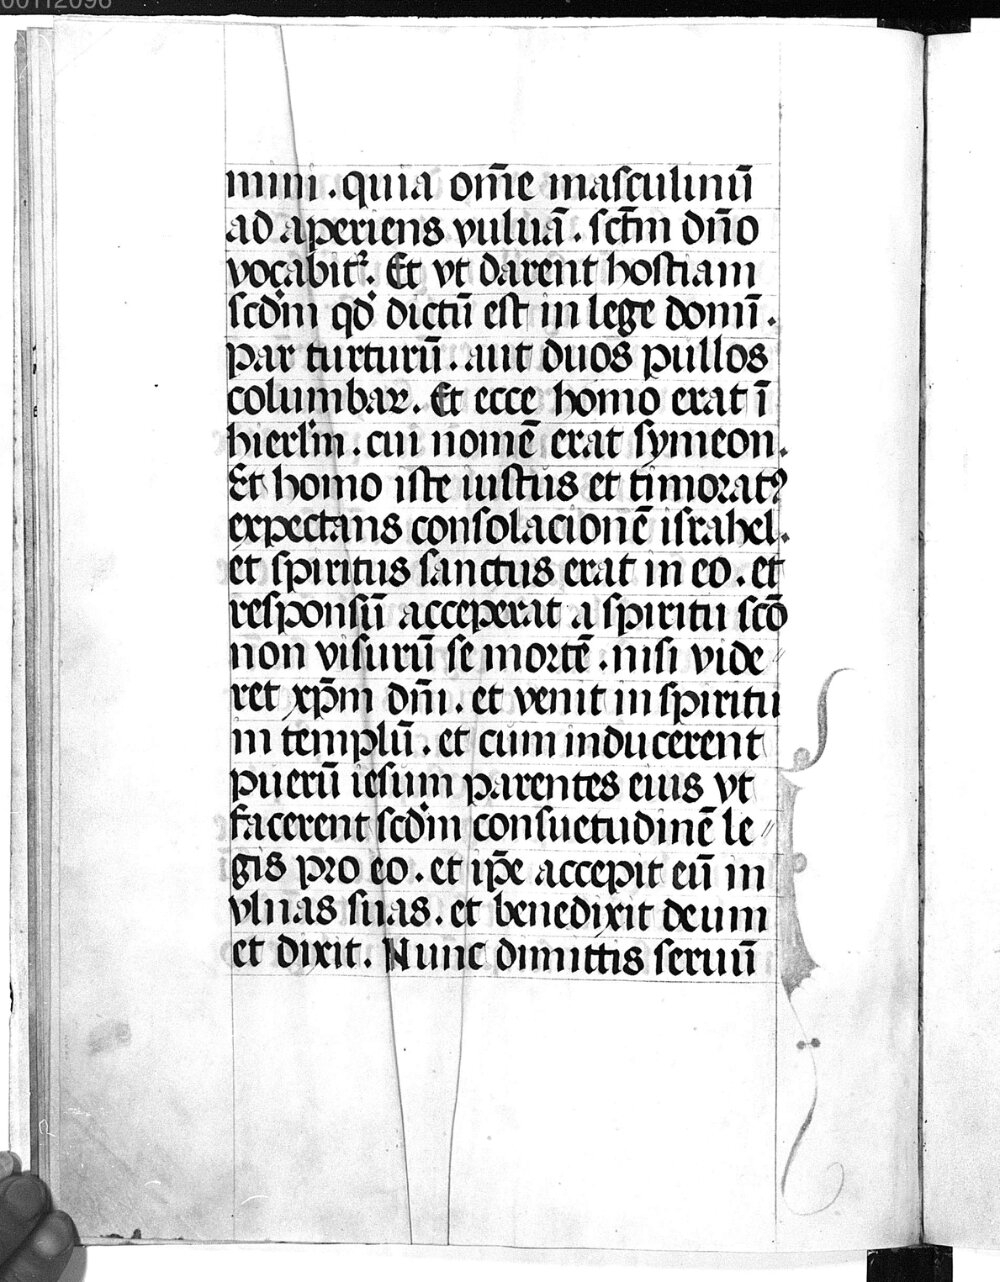 mini . quia om̄e masculinū
ad aperiens vuluā . sct̄m dn̄o
vocabitꝰ. Et vt darent hostiam
scd̓m qd̓ dictū est in lege domī .
par turturū . aut duos pullos
columbaꝝ . Et ecce homo erat ī
hierl̓m . cui nomē erat symeon .
Et homo iste iustus et timoratꝰ
expectans consolacionē israhel .
et spiritus sanctus erat in eo . et
responsū acceperat a spiritu scō
non visurū se mortē . nisi vide //
ret xp̄m dn̄i . et venit in spiritu
in templū . et cum inducerent
puerū iesum parentes eius vt
facerent scd̓m consuetudinē le //
gis pro eo . et ip̄e accepit eū in
vlnas suas . et benedixit deum
et dixit . Nunc dimittis seruū